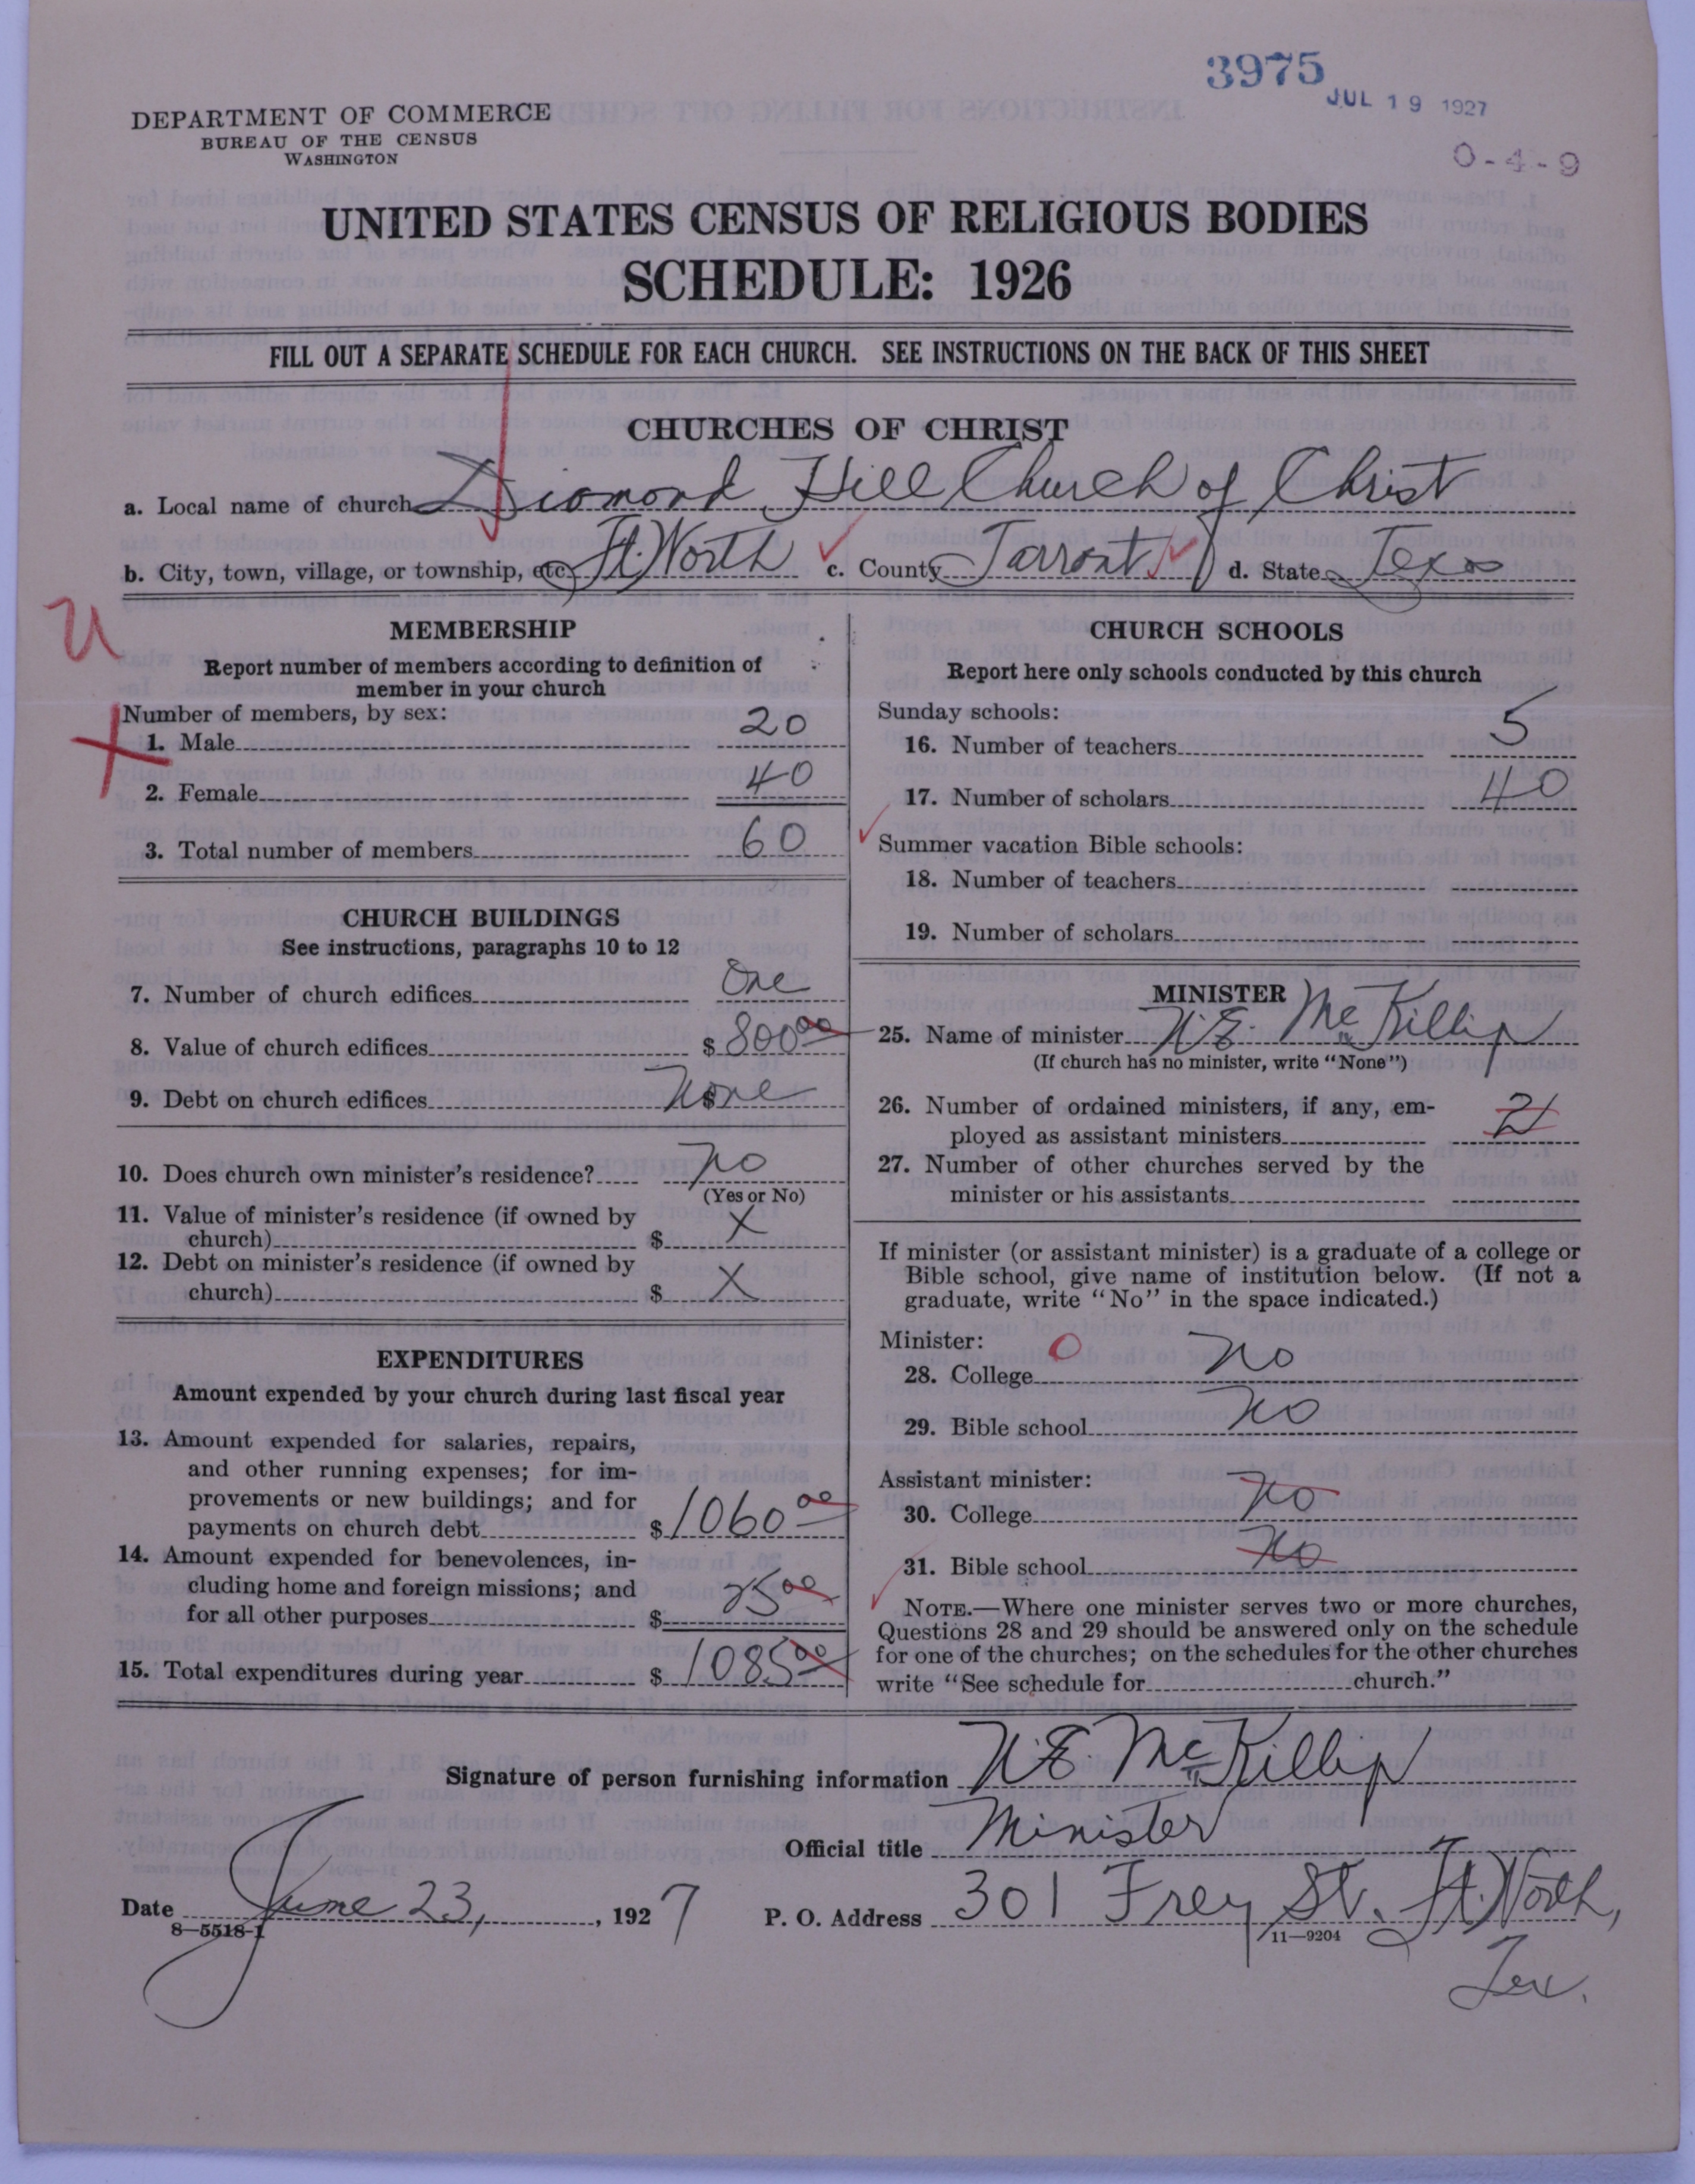 3975
JUL 19 1927
0-4-9
DEPARTMENT OF COMMERCE
BUREAU OF THE CENSUS
WASHINGTON
UNITED STATES CENSUS OF RELIGIOUS BODIES
SCHEDULE: 1926
FILL OUT A SEPARATE SCHEDULE FOR EACH CHURCH. SEE INSTRUCTIONS ON THE BACK OF THIS SHEET
CHURCHES OF CHRIST
a. Local name of church Diamond Hill Church of Christ
b. City, town, village, or township, etc. Ft. Worth c. County Tarrant d. State Texas
U
X
MEMBERSHIP
Report number of members according to definition of
member in your church
Number of members, by sex:
1. Male 20
2. Female 40
3. Total number of members 60
CHURCH BUILDINGS
See instructions, paragraphs 10 to 12
7. Number of church edifices One
8. Value of church edifices $ 800 00
9. Debt on church edifices $ None
10. Does church own minister's residence? No
(Yes or No)
11. Value of minister's residence (if owned by
church) $ X
12. Debt on minister's residence (if owned by
church) $ X
EXPENDITURES
Amount expended by your church during last fiscal year
13. Amount expended for salaries, repairs,
and other running expenses; for im-
provements or new buildings; and for
payments on church debt $ 1060 00
14. Amount expended for benevolences, in-
cluding home and foreign missions; and
for all other purposes $ 25 00
15. Total expenditures during year $ 1085 00
CHURCH SCHOOLS
Report here only schools conducted by this church
Sunday schools:
16. Number of teachers 5
17. Number of scholars 40
Summer vacation Bible schools:
18. Number of teachers
19. Number of scholars
MINISTER
25. Name of minister W.E. McKillip
(If church has no minister, write "None")
26. Number of ordained ministers, if any, em-
ployed as assistant ministers 2
27. Number of other churches served by the
minister or his assistants
If minister (or assistant minister) is a graduate of a college or
Bible school, give name of institution below. (If not a
graduate, write "No" in the space indicated.)
Minister: 0
28. College No
29. Bible school No
Assistant minister:
30. College No
31. Bible school No
NOTE.—Where one minister serves two or more churches,
Questions 28 and 29 should be answered only on the schedule
for one of the churches; on the schedules for the other churches
write "See schedule for church."
Signature of person furnishing information W.E. McKillip
Official title Minister
Date June 23, 1927 P. O. Address 301 Frey St. Ft. Worth,
Tex.
8—5518-1
11—9204